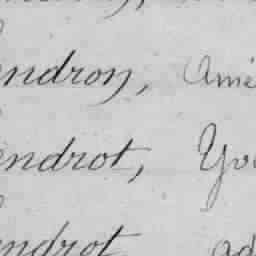 endron, Amé
endrot, Yv
endrot ad